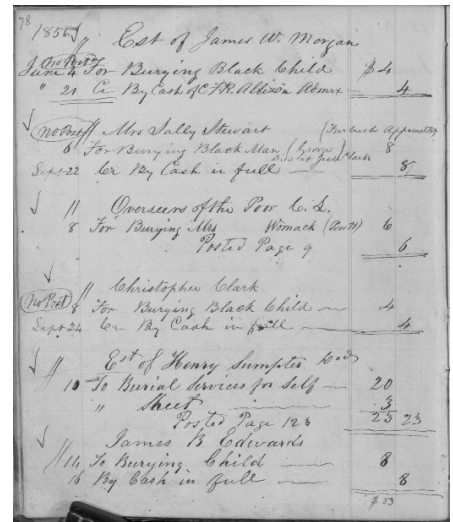 78
1856
Est of James W. Morgan
No Post
June 4 For Burying Black Child $4
" 21 Cr By Cash of Allison Admrx 4
No Post Mrs Sally Stewart
6 For Burying Black Man (George) 8
Sept 22 Cr By Cash in full 8
11 Overseers of the Poor C. L.
8 For Burying Mrs Womack 6
Posted Page 9 6
Christopher Clark
No Post 8 For Burying Black Child 4
Sept 24 Cr By Cash in full 4
Est of Henry Sumpter Decd
10 To Burial Services for Self 20
" Sheet 3
Posted Page 123 23 23
James B Edwards
14 To Burying Child 8
16 By Cash in full 8
$53